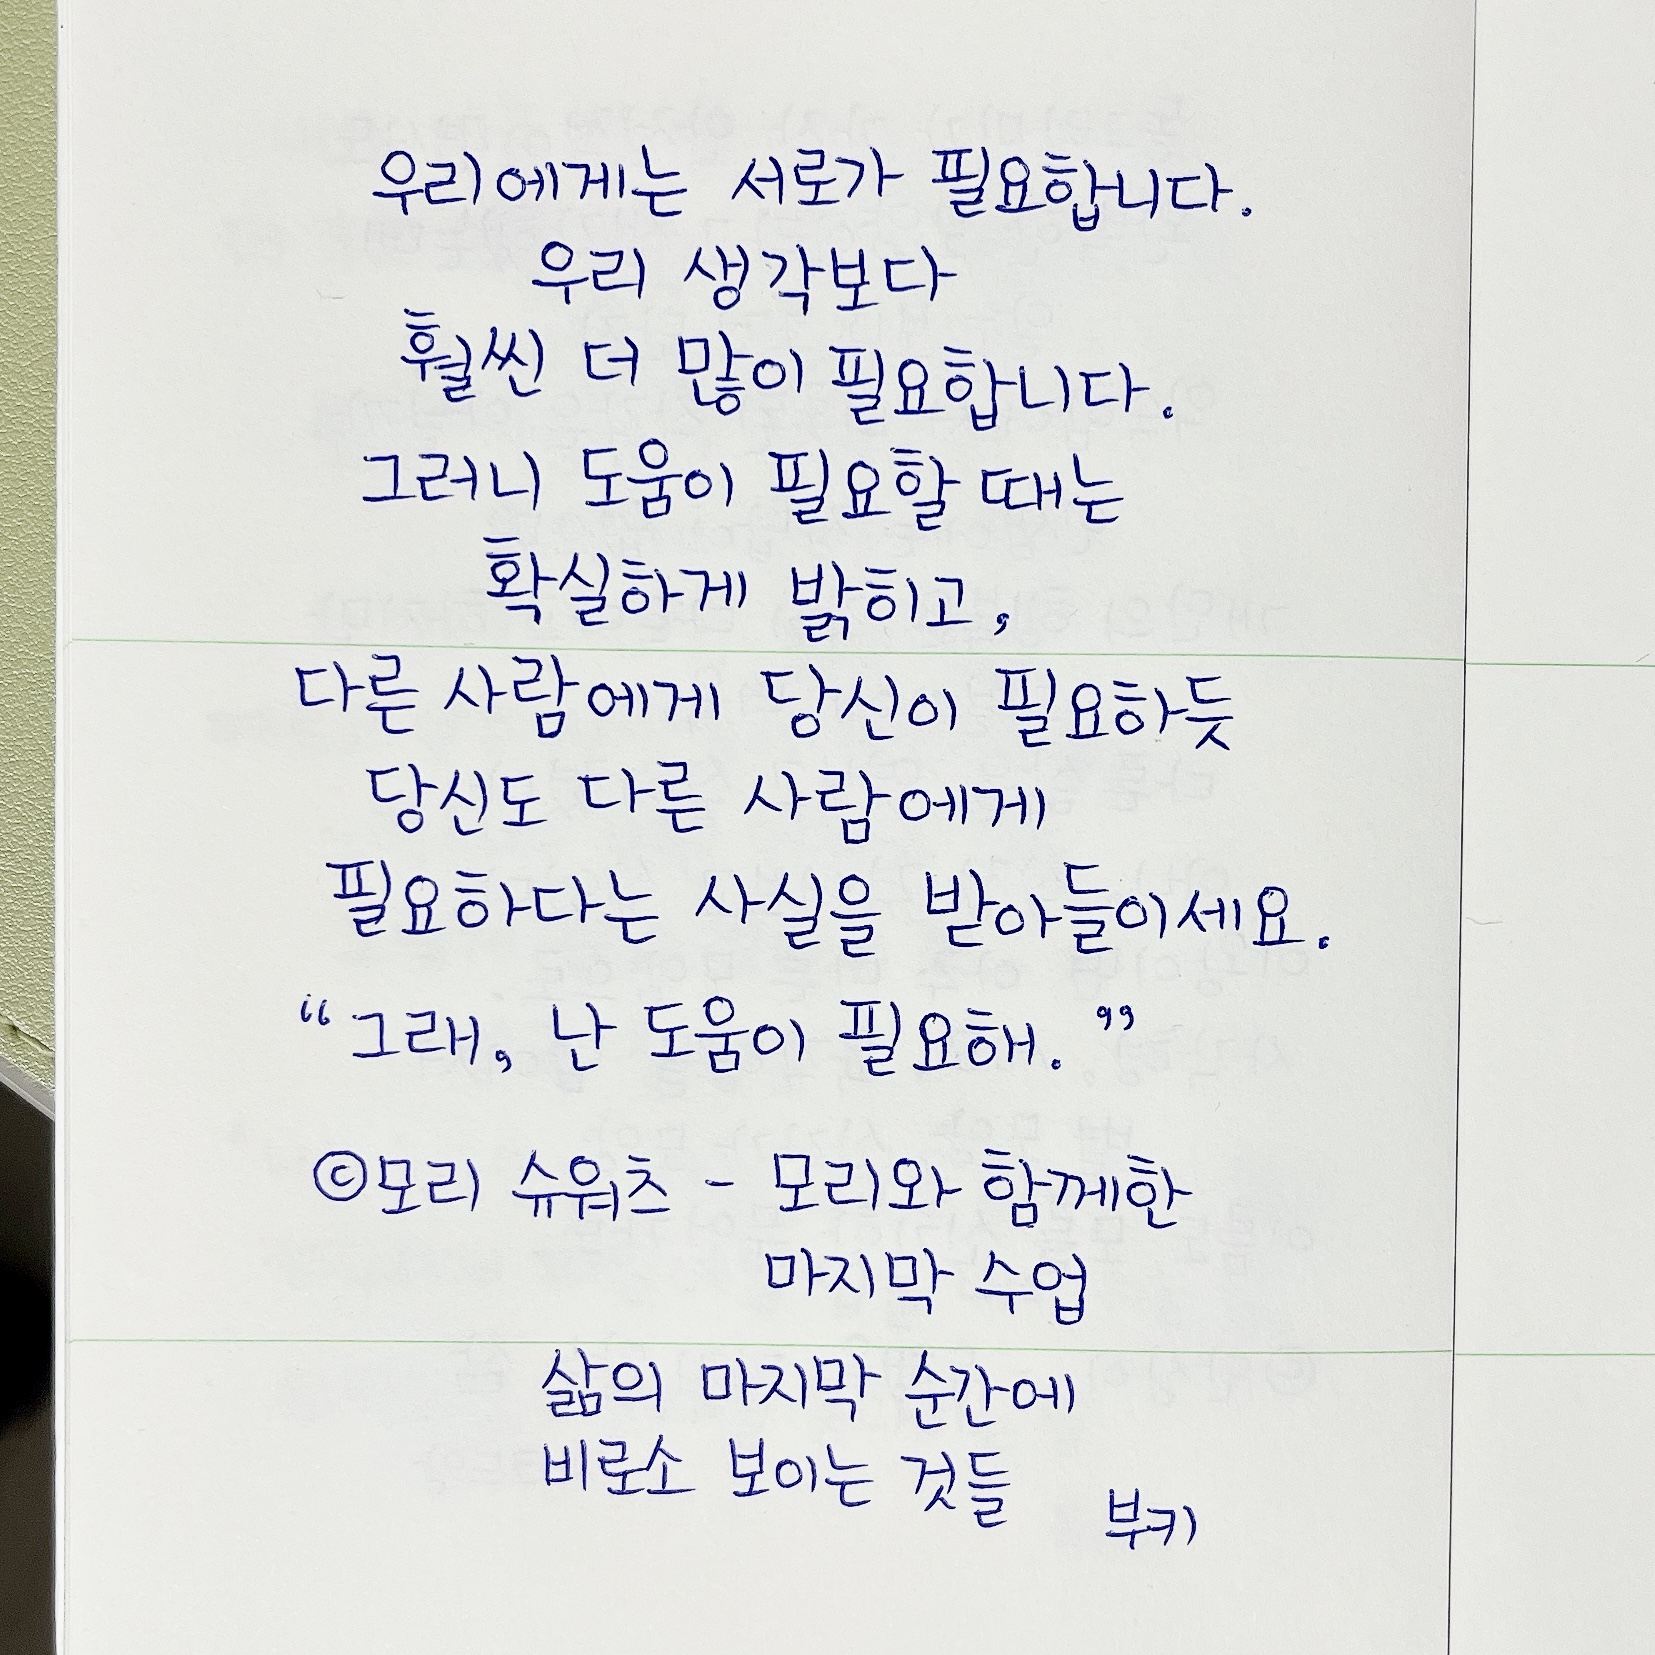 우리에게는 서로가 필요합니다.
우리 생각보다
훨씬 더 많이 필요합니다.
그러니 도움이 필요할 때는
확실하게 밝히고,
다른 사람에게 당신이 필요하듯
당신도 다른 사람에게
필요하다는 사실을 받아들이세요.
“그래, 난 도움이 필요해.”
©모리 슈워츠 - 모리와 함께한
마지막 수업
삶의 마지막 순간에
비로소 보이는 것들
부키